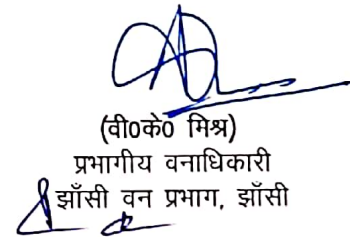 (वी0के0 मिश्र)
प्रभागीय वनाधिकारी
झाँसी वन प्रभाग, झाँसी